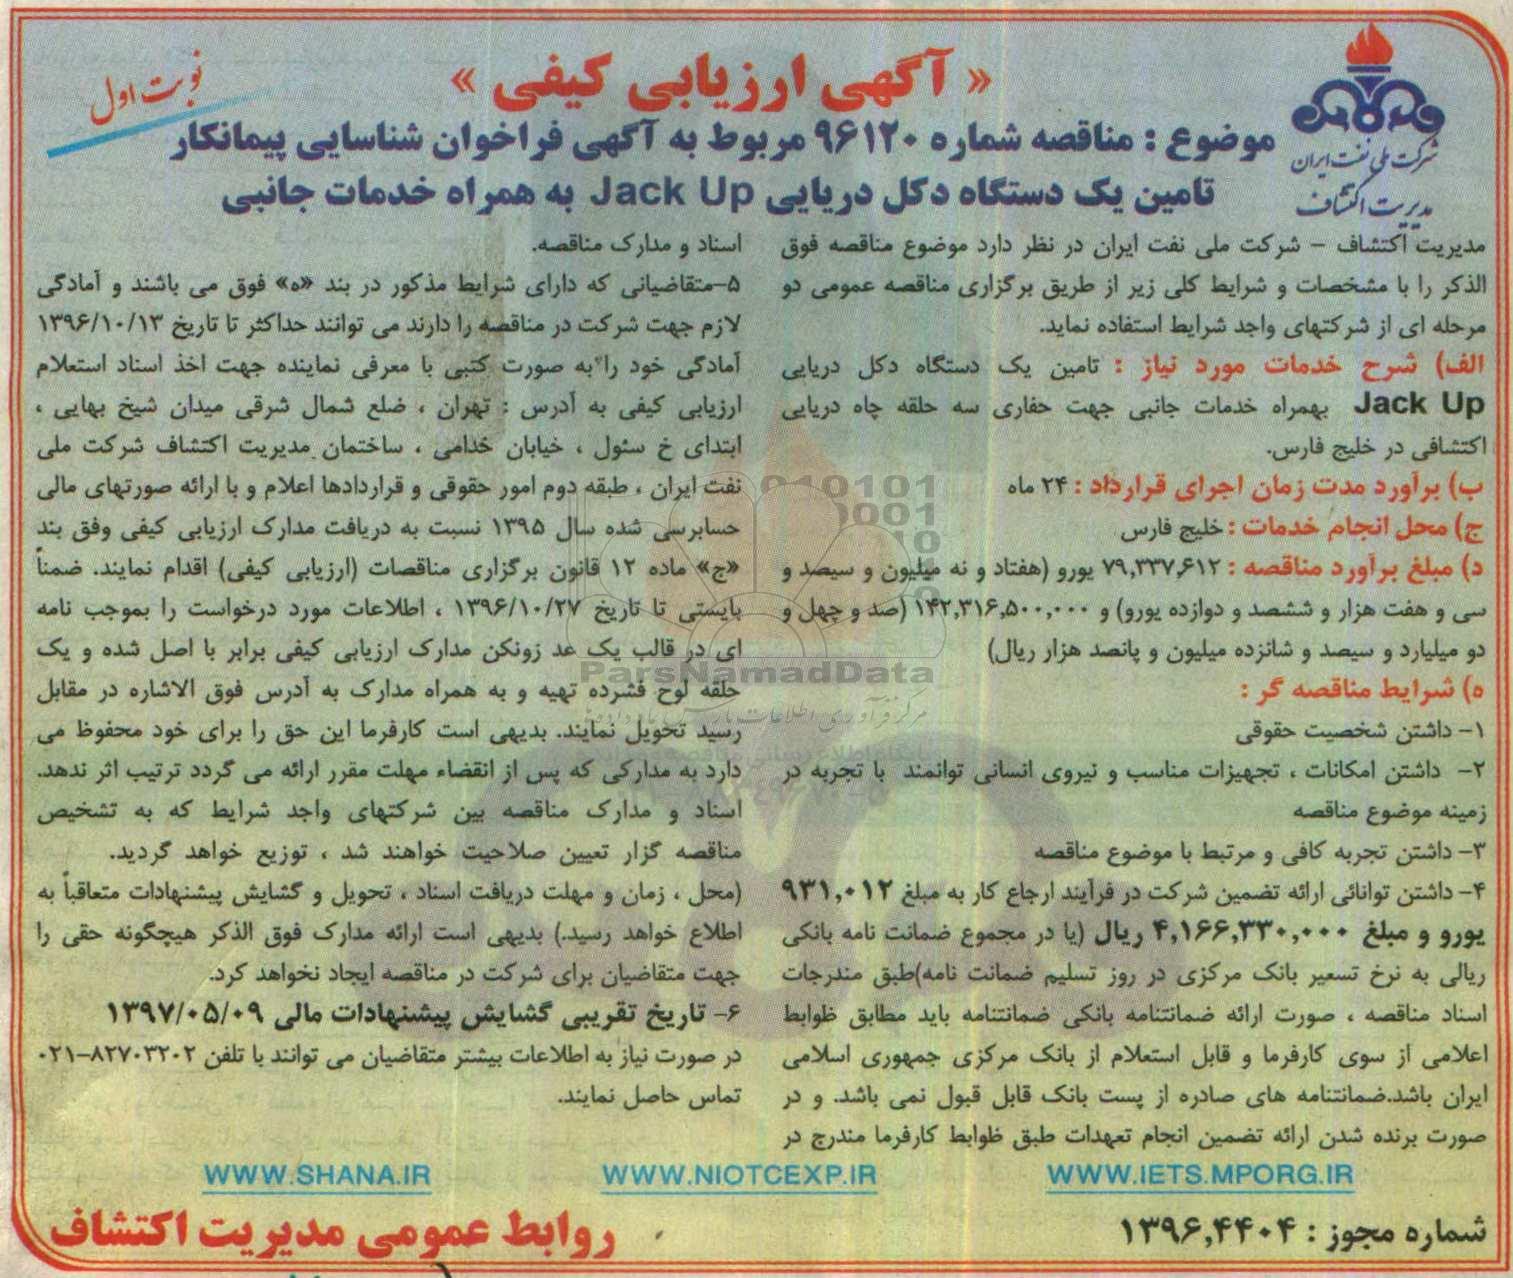 « آگهی ارزیابی کیفی »
نوبت اول
شرکت ملی نفت ایران
مدیریت اکتشاف
موضوع : مناقصه شماره ۹۶۱۲۰ مربوط به آگهی فراخوان شناسایی پیمانکار
تامین یک دستگاه دکل دریایی Jack Up به همراه خدمات جانبی
مدیریت اکتشاف – شرکت ملی نفت ایران در نظر دارد موضوع مناقصه فوق
الذکر را با مشخصات و شرایط کلی زیر از طریق برگزاری مناقصه عمومی دو
مرحله ای از شرکتهای واجد شرایط استفاده نماید.
الف) شرح خدمات مورد نیاز : تامین یک دستگاه دکل دریایی
Jack Up بهمراه خدمات جانبی جهت حفاری سه حلقه چاه دریایی
اکتشافی در خلیج فارس.
ب) برآورد مدت زمان اجرای قرارداد : ۲۴ ماه
ج) محل انجام خدمات : خلیج فارس
د) مبلغ برآورد مناقصه : ۷۹,۳۳۷,۶۱۲ یورو (هفتاد و نه میلیون و سیصد و
سی و هفت هزار و ششصد و دوازده یورو) و ۱۴۲,۳۱۶,۵۰۰,۰۰۰ (صد و چهل و
دو میلیارد و سیصد و شانزده میلیون و پانصد هزار ریال)
ه) شرایط مناقصه گر :
۱- داشتن شخصیت حقوقی
۲- داشتن امکانات ، تجهیزات مناسب و نیروی انسانی توانمند با تجربه در
زمینه موضوع مناقصه
۳- داشتن تجربه کافی و مرتبط با موضوع مناقصه
۴- داشتن توانائی ارائه تضمین شرکت در فرآیند ارجاع کار به مبلغ ۹۳۱,۰۱۲
یورو و مبلغ ۴,۱۶۶,۳۳۰,۰۰۰ ریال (یا در مجموع ضمانت نامه بانکی
ریالی به نرخ تسعیر بانک مرکزی در روز تسلیم ضمانت نامه)طبق مندرجات
اسناد مناقصه ، صورت ارائه ضمانتنامه بانکی ضمانتنامه باید مطابق ظوابط
اعلامی از سوی کارفرما و قابل استعلام از بانک مرکزی جمهوری اسلامی
ایران باشد.ضمانتنامه های صادره از پست بانک قابل قبول نمی باشد. و در
صورت برنده شدن ارائه تضمین انجام تعهدات طبق ظوابط کارفرما مندرج در
اسناد و مدارک مناقصه.
۵-متقاضیانی که دارای شرایط مذکور در بند «ه» فوق می باشند و آمادگی
لازم جهت شرکت در مناقصه را دارند می توانند حداکثر تا تاریخ ۱۳۹۶/۱۰/۱۳
آمادگی خود را به صورت کتبی با معرفی نماینده جهت اخذ اسناد استعلام
ارزیابی کیفی به آدرس : تهران ، ضلع شمال شرقی میدان شیخ بهایی ،
ابتدای خ سئول ، خیابان خدامی ، ساختمان مدیریت اکتشاف شرکت ملی
نفت ایران ، طبقه دوم امور حقوقی و قراردادها اعلام و با ارائه صورتهای مالی
حسابرسی شده سال ۱۳۹۵ نسبت به دریافت مدارک ارزیابی کیفی وفق بند
«ج» ماده ۱۲ قانون برگزاری مناقصات (ارزیابی کیفی) اقدام نمایند. ضمناً
بایستی تا تاریخ ۱۳۹۶/۱۰/۲۷ ، اطلاعات مورد درخواست را بموجب نامه
ای در قالب یک عد زونکن مدارک ارزیابی کیفی برابر با اصل شده و یک
حلقه لوح فشرده تهیه و به همراه مدارک به آدرس فوق الاشاره در مقابل
رسید تحویل نمایند. بدیهی است کارفرما این حق را برای خود محفوظ می
دارد به مدارکی که پس از انقضاء مهلت مقرر ارائه می گردد ترتیب اثر ندهد.
اسناد و مدارک مناقصه بین شرکتهای واجد شرایط که به تشخیص
مناقصه گزار تعیین صلاحیت خواهند شد ، توزیع خواهد گردید.
(محل ، زمان و مهلت دریافت اسناد ، تحویل و گشایش پیشنهادات متعاقباً به
اطلاع خواهد رسید.) بدیهی است ارائه مدارک فوق الذکر هیچگونه حقی را
جهت متقاضیان برای شرکت در مناقصه ایجاد نخواهد کرد.
۶- تاریخ تقریبی گشایش پیشنهادات مالی ۱۳۹۷/۰۵/۰۹
در صورت نیاز به اطلاعات بیشتر متقاضیان می توانند با تلفن ۸۲۷۰۳۲۰۲-۰۲۱
تماس حاصل نمایند.
WWW.IETS.MPORG.IR
WWW.NIOTCEXP.IR
WWW.SHANA.IR
شماره مجوز : ۱۳۹۶,۴۴۰۴
روابط عمومی مدیریت اکتشاف
ParsNamadData